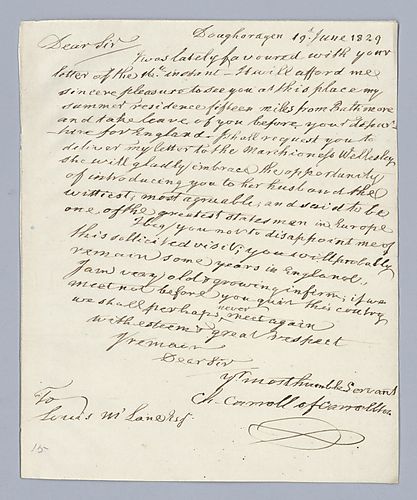 Doughoragen 19. June 1829
Dear Sir
I was lately favoured with your
letter of the instant - It will afford me
sincere pleasure to see you at this place my
summer residence fifteen miles from Baltimore
and take leave of you before your depar-
ture for England - I shall request you to
deliver my letter to the Marchioness Wellesley
she will gladly embrace the opportunity
of introducing you to her husband the
wittiest, most agreable, and said to be
one of the greatest statesmen in Europe
I beg you not to disappoint me of
this sollicited visit; you will probably
remain some years in England,
I am very old & growing infirm; if we
meet not before you quit this country
we shall perhaps, never meet again
with esteem & great respect
I remain
Dear Sir
yr. most humble Servant
Ch. Carroll of Carrollton
To
Louis McLane Esq.
15